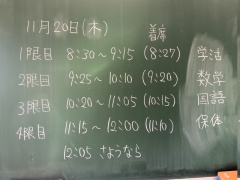 11月20日(木) 着席
1限目 8:30~9:15 (8:27) 学活
2限目 9:25~10:10 (9:20) 数学
3限目 10:20~11:05 (10:15) 国語
4限目 11:15~12:00 (11:10) 保体
12:05 さようなら